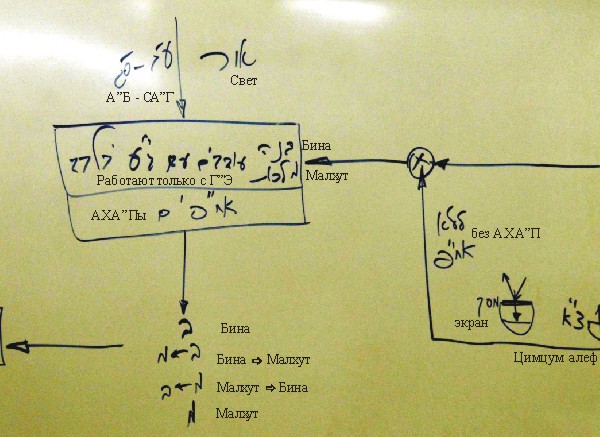 אור
Свет
ע"ב - ס"ג
А"Б - СА"Г
בינה
Бина
מלכות
Малхут
עובדים עם ג"ע
Работают только с Г"Э
АХА"Пы
אח"פ ים
ללא
אח"פ
без АХА"П
מסך
экран
צ"א
Цимцум алеф
ב
Бина
ב → מ
Бина ⇨ Малхут
מ → ב
Малхут ⇨ Бина
מ
Малхут